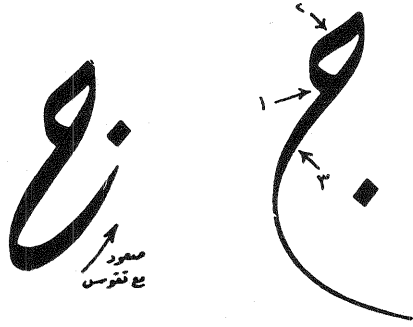 ج
٢
١
٣
ج
صعود
مع تقوس